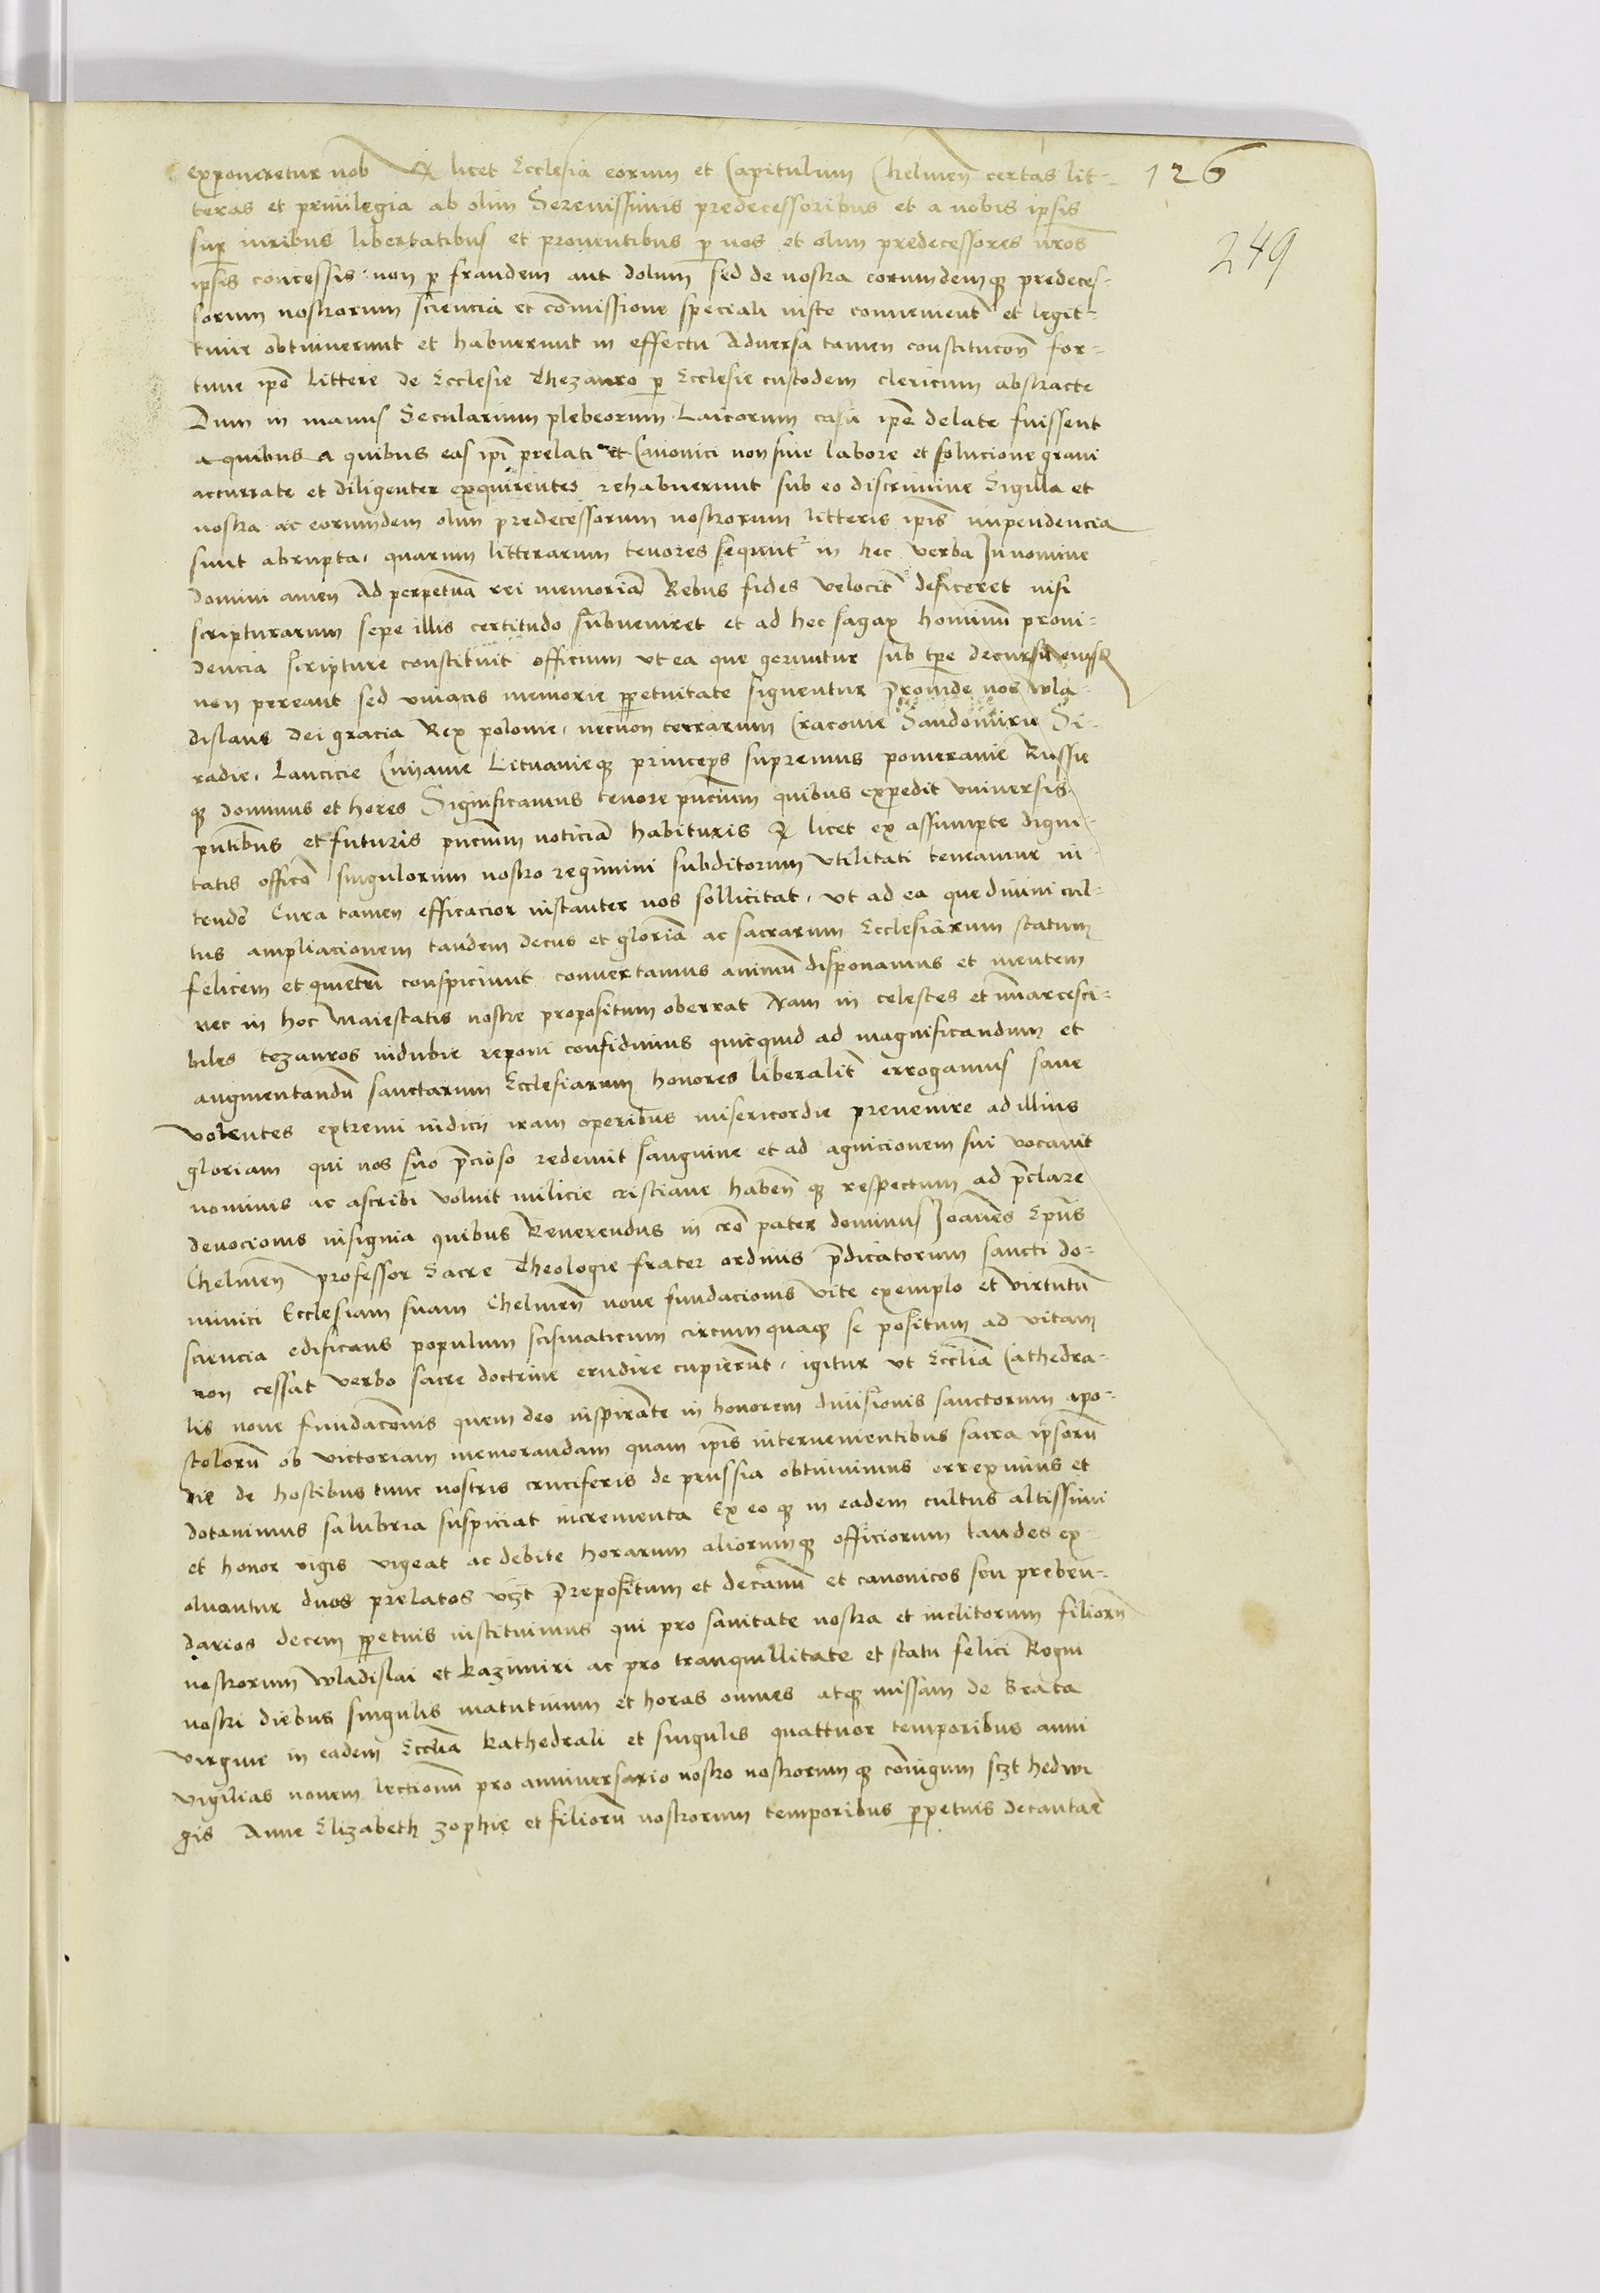 exponeretur nob Q licet Ecclesia eorum et Capitulum Chelmeñ certas lit-
teras et priuilegia ab olim Serenissimis predecessoribus et a nobis ipsis
sup iuribus libertatibus et prouentibus p nos et olim predecessores nros
ipsis concessis non p fraudem aut dolum sed de nostra eorumdemq predeces-
sorum nostrorum sciencia et comissione speciali iuste conuenient et legit-
time obtinuerunt et habuerunt in effectu Aduersa tamen constitucon for-
tune ipe littere de Ecclesie Thezauro p Ecclesie custodem clericum abstracte
Dum in manus Secularium plebeorum Laicorum casu ipe delate fuissent
a quibus a quibus eas ipi prelati et Canonici non sine labore et solucione graui
accurrate et diligenter exquirentes rehabuerunt sub eo discrimine Sigilla et
nostra ac eorumdem olim predecessorum nostrorum litteris ipis impendencia
sunt abrupta, quarum litterarum tenores sequnt in hec verba In nomine
domini amen Ad perpetua rei memoria Rebus fides velocit deficeret nisi
scripturarum sepe illis certitudo subueniret et ad hec sagax hominu proui-
dencia scripture constituit officium ut ea que geruntur sub tpe decursu eiusq
non pereant sed viuacis memorie ppetuitate signentur Proinde nos wla-
dislaus dei gracia Rex polonie, necnon terrarum Cracouie Sandomirie Si-
radie, Lancicie Cuyauie Lituanieq princeps supremus pomeranie Russie
q dominus et heres Significamus tenore pncium quibus expedit vniuersis
pntibus et futuris pncium noticia habituris Q licet ex assumpte digni-
tatis officio singulorum nostro regimini subditorum vtilitati teneamur in-
tende Cura tamen efficacior instanter nos sollicitat, ut ad ea que diuini cul-
tus ampliacionem tandem decus et gloria ac sacrarum Ecclesiarum statum
felicem et quietem conspiciunt conuertamus animu disponamus et mentem
nec in hoc maiestatis nostre propositum oberrat Nam in celestes et imarcesci-
biles tezauros indubie reponi confidimus quicquid ad magnificandum et
augmentandu sanctarum Ecclesiarum honores liberalit errogamus sane
volentes extremi iudicii iram operibus misericordie preuenire ad illius
gloriam qui nos suo pcioso redemit sanguine et ad agnicionem sui vocauit
nominis ac ascribi voluit milicie cristiane haben q respectum ad pclare
deuocionis insignia quibus Reuerendus in cro pater dominus Joannes Epus
Chelmen professor Sacre Theologie frater ordinis pdicatorum sancti do-
minici Ecclesiam suam Chelmen noue fundacionis vite exemplo et virtutu
sciencia edificans populum scismaticum circumquaq se positum ad vitam
non cessat verbo sacre doctrine erudire cupierunt, igitur ut Eccliam Cathedra-
lis noue fundaconis quem deo inspirante in honorem diuisionis sanctorum apo-
stoloru ob victoriam memorandam quam ipis interuenientibus sacra ipsoru
die de hostibus tunc nostris cruciferis de prussia obtinuimus erreximus et
dotauimus salubria suspiciat incrementa Ex eo q in eadem cultus altissimi
et honor vigis vigeat ac debite horarum aliorumq officiorum laudes ex-
oluantur duos prelatos vizt Prepositum et decanu et canonicos seu preben-
darios decem ppetuis instituimus qui pro sanitate nostra et inclitorum filioru
nostrorum Wladislai et kazimiri ac pro tranquillitate et statu felici Regni
nostri diebus singulis matutinum et horas omnes atq missam de Beata
virgine in eadem Ecclia kathedrali et singulis quattuor temporibus anni
vigilias nouem lectionu pro anniuersario nostro nostrorumq coniugum sczt hedwi
gis Anne Elizabeth zophie et filioru nostrorum temporibus ppetuis decantare
126
249